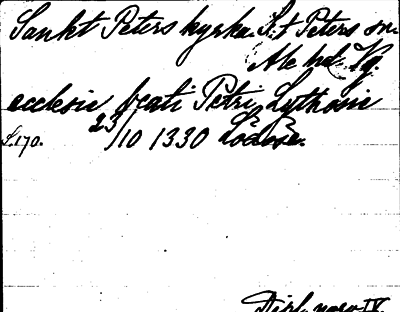 Sankt Peters kyrka S:t Peters sn.
Ale hd. Vg.
ecclesie beati Petri Lythosie
23/10 1330 Lödöse.
S. 170.
Dipl. norv. IV.